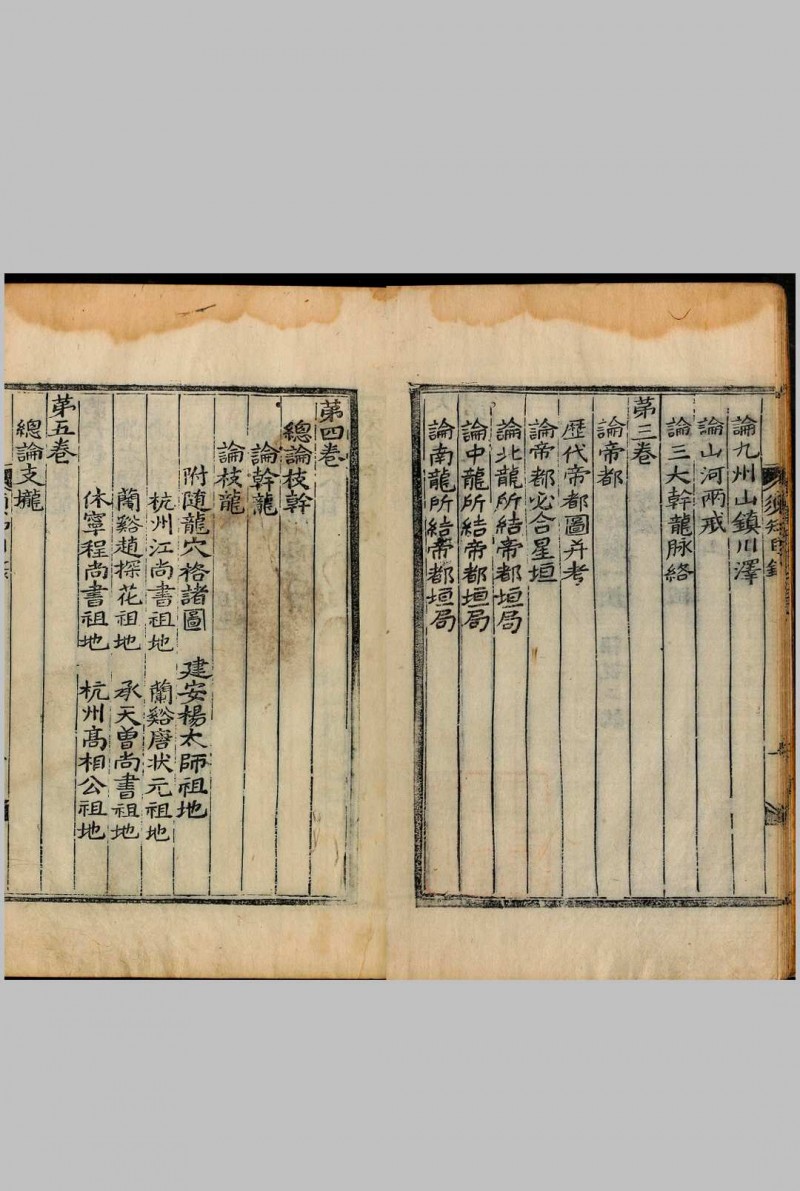 論九州山鎮川澤
論山河兩戒
論三大幹龍脉絡
第三卷
論帝都
歷代帝都圖并考
論帝都必合星垣
論北龍所結帝都垣局
論中龍所結帝都垣局
論南龍所結帝都垣局
第四卷
總論枝幹
論幹龍
論枝龍
附随龍穴格諸圖 建安楊太師祖地
杭州江尚書祖地 蘭谿唐状元祖地
蘭谿趙探花祖地 承天曾尚書祖地
休寧程尚書祖地 杭州高相公祖地
第五卷
總論支壠